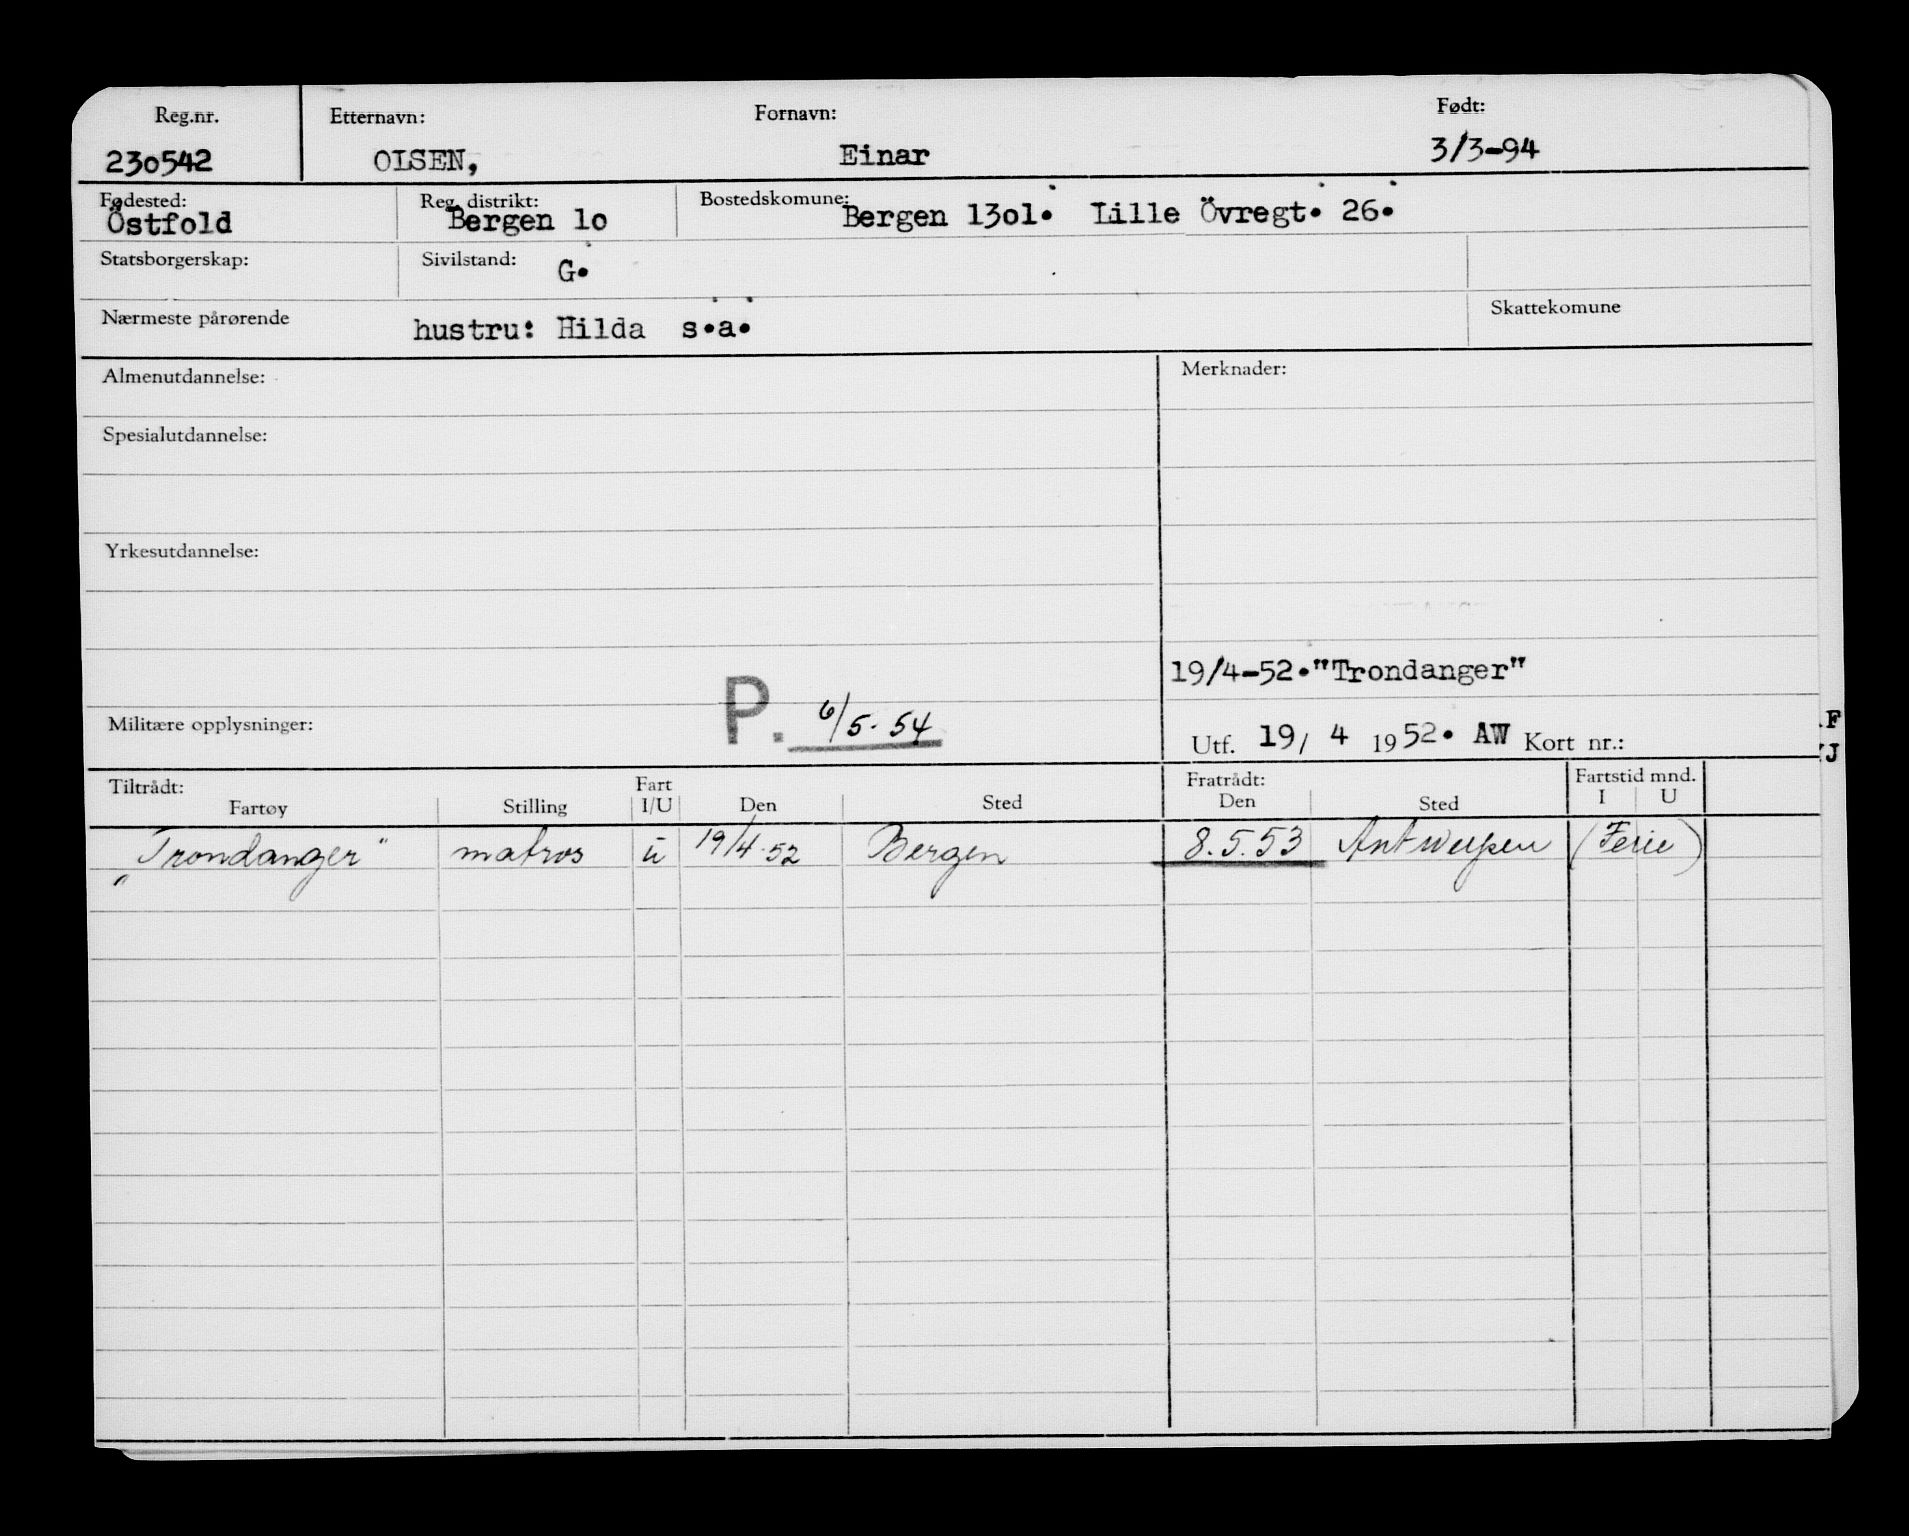 Reg.nr. Etternavn: Fornavn: Født:
230542 OLSEN, Einar 3/3-94
Fødested: Reg. distrikt: Bostedskomune:
Östfold Bergen 1o Bergen 13o1. Lille Övregt. 26.
Statsborgerskap: Sivilstand: G.
Nærmeste pårørende hustru: Hilda s.a. Skattekomune
Almenutdannelse: Merknader:
Spesialutdannelse:
Yrkesutdannelse:
19/4-52."Trondanger"
Militære opplysninger: P. 6/5-54
Utf. 19/ 4 1952. AW Kort nr.:
F
J
Tiltrådt: Fart Fratrådt: Fartstid mnd.
Fartøy Stilling I/U Den Sted Den Sted I U
"Trondanger" matros u 19/4-52 Bergen 8.5.53 Antwerpen (Ferie)